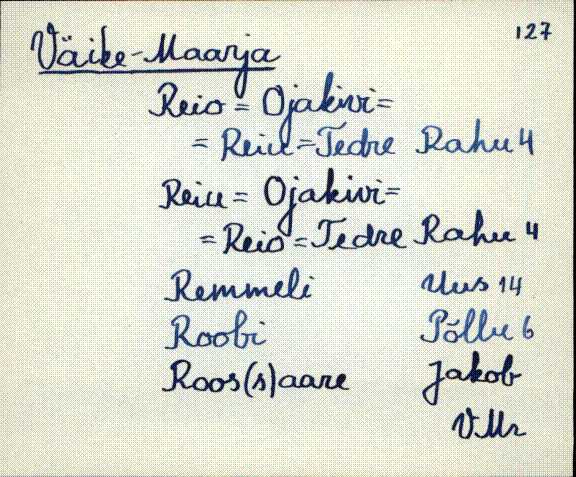 127
Väike-Maarja
Reio = Ojakivi =
= Reiu = Tedre Rahu 4
Reiu = Ojakivi =
= Reio = Tedre Rahu 4
Remmeli Uus 14
Roobi Põllu 6
Roos(s)aare Jakob
VMr